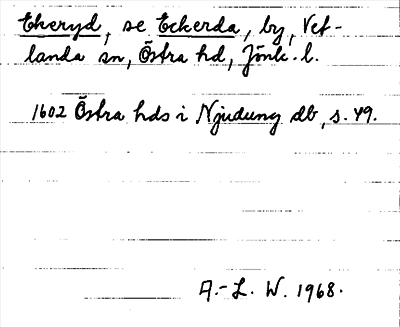 Ekeryd, se Eckerda, by, Vet-
landa sn, Östra hd, Jönk. l.
1602 Östra hds i Njudung db, s. 49.
A.-L. W. 1968.